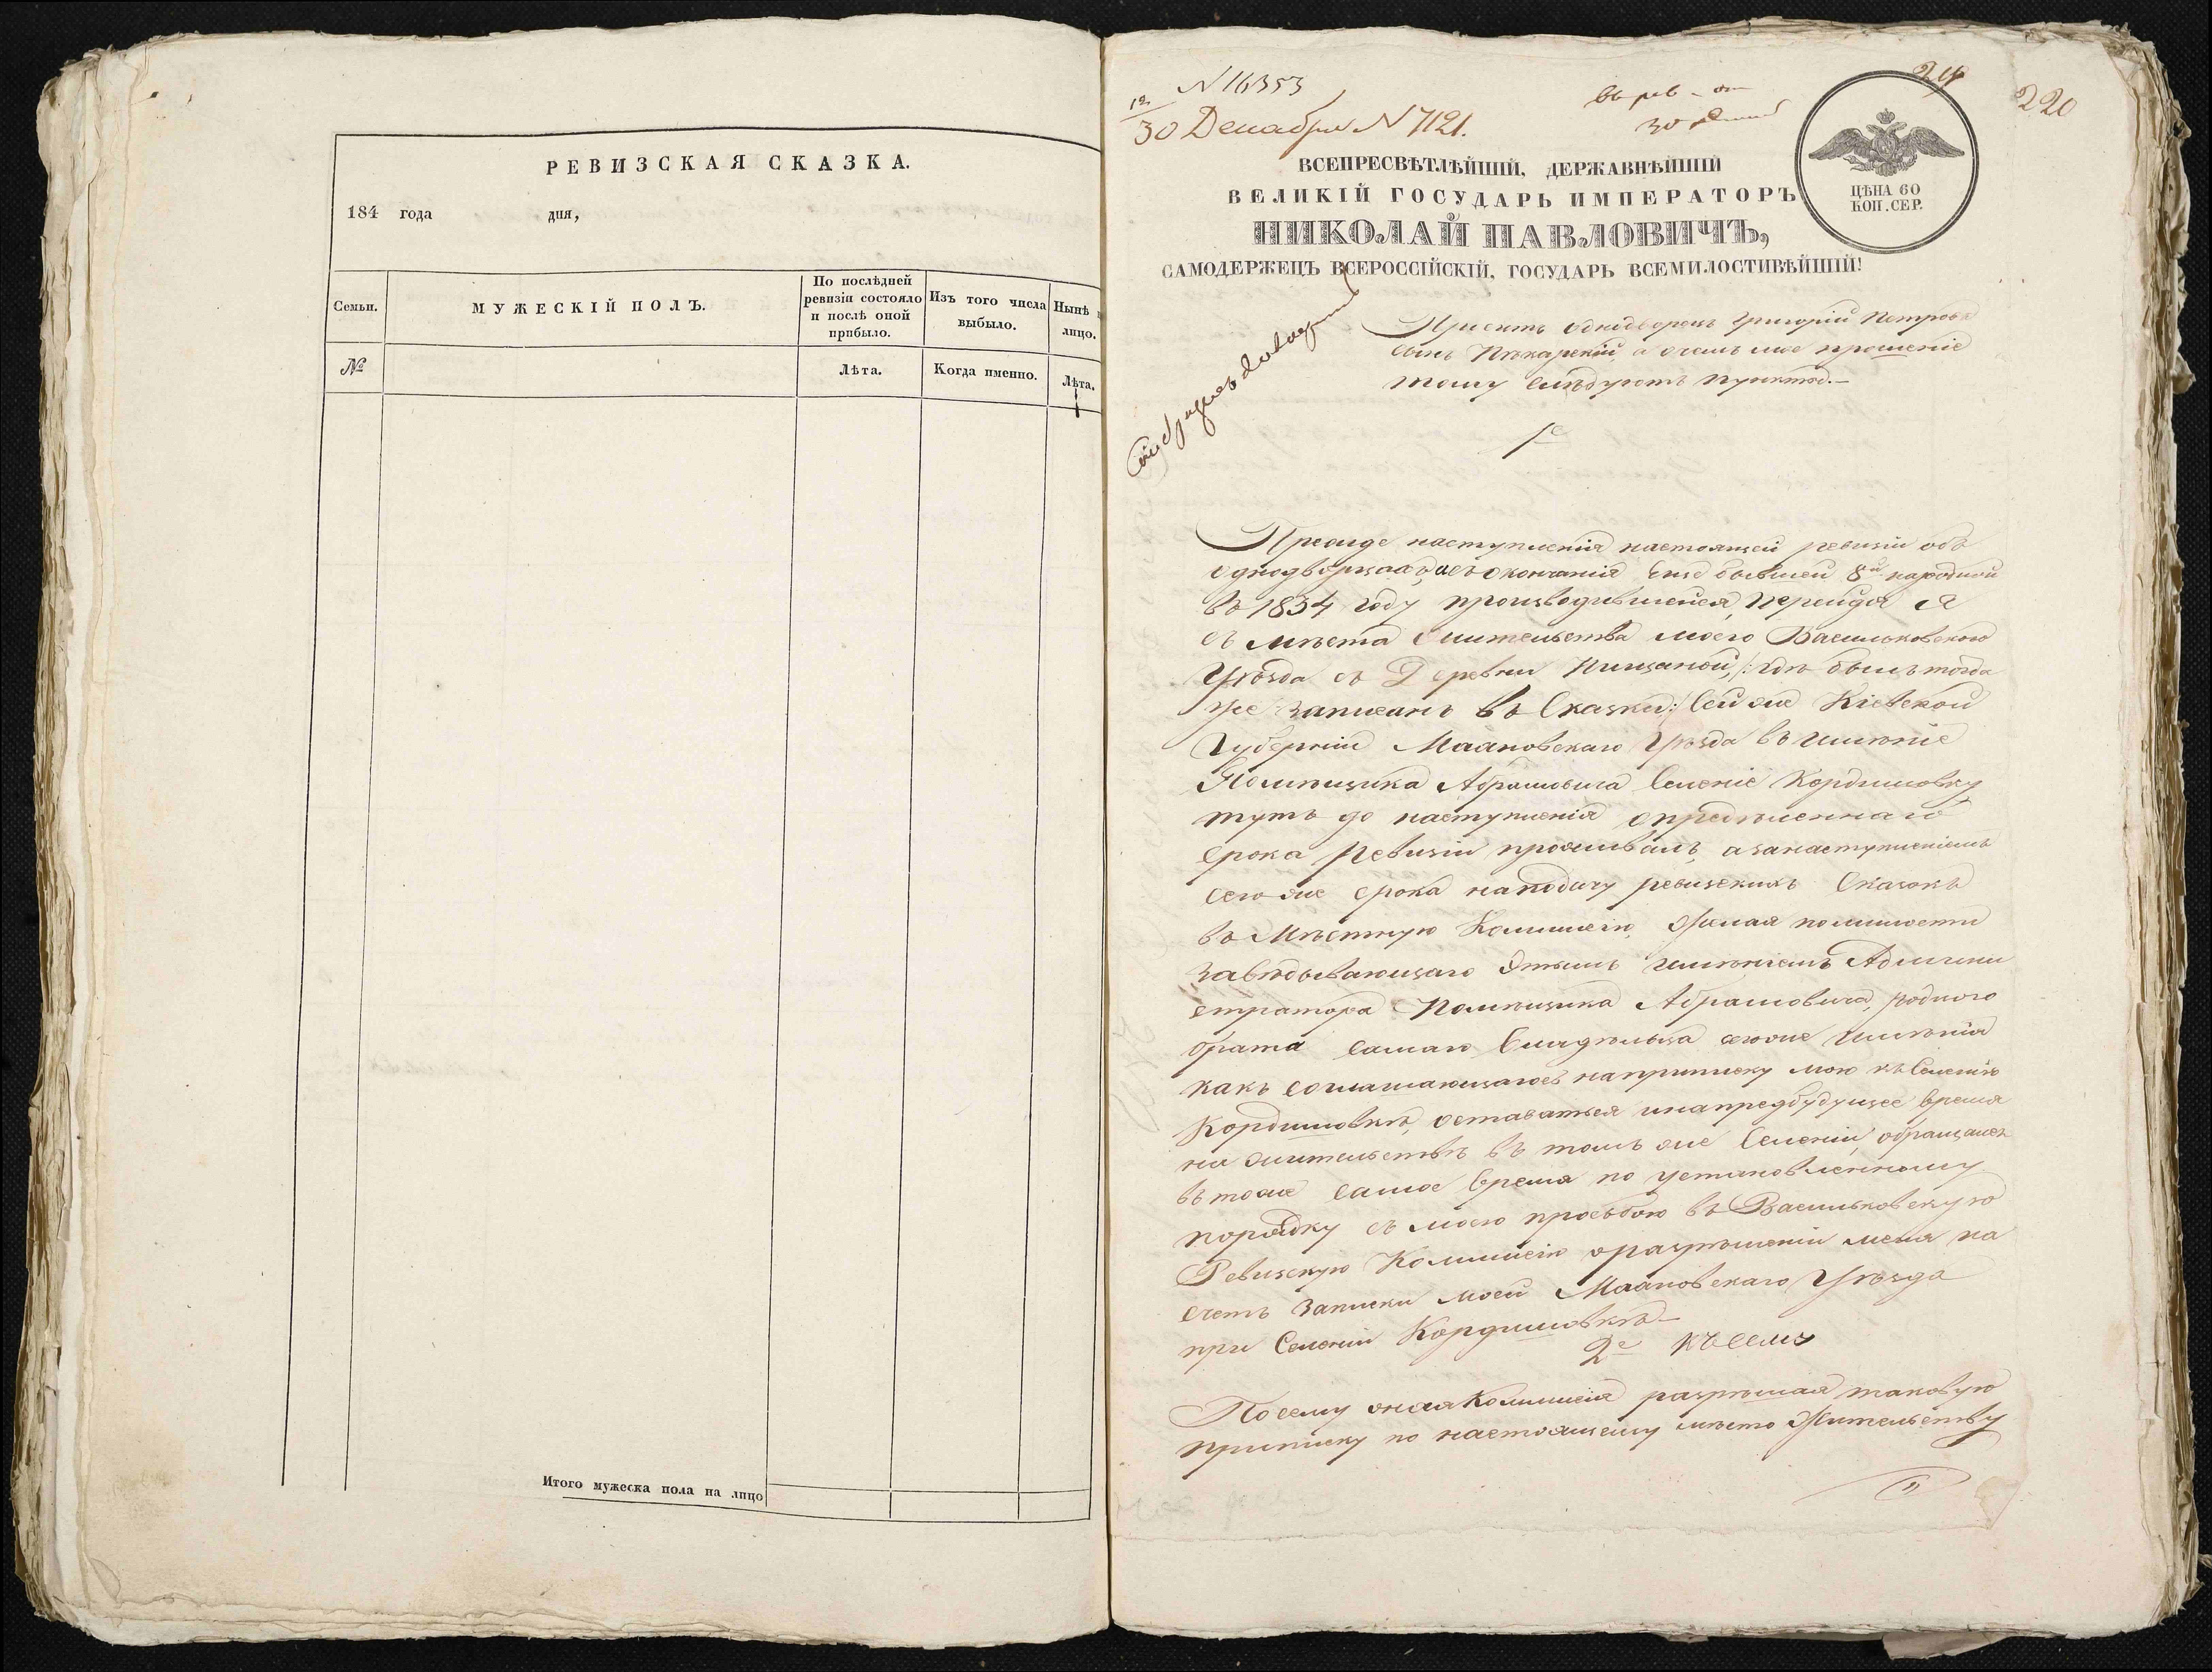 РЕВИЗСКАЯ СКАЗКА.
184 года дня,
Семьи.
МУЖЕСКІЙ ПОЛЪ.
По послѣдней ревизіи состояло и послѣ оной прибыло.
Изъ того числа выбыло.
Нынѣ лицо.
№
Лѣта.
Когда именно.
Лѣта.
Итого мужеска пола на лицо
N 16353
30 Декабря N 7121.
220
ЦѢНА 60
КОП. СЕР.
ВСЕПРЕСВѢТЛѢЙШІЙ, ДЕРЖАВНѢЙШІЙ
ВЕЛИКІЙ ГОСУДАРЬ ИМПЕРАТОРЪ
НИКОЛАЙ ПАВЛОВИЧЪ,
САМОДЕРЖЕЦЪ ВСЕРОССІЙСКІЙ, ГОСУДАРЬ ВСЕМИЛОСТИВѢЙШІЙ!
Проситъ однодворецъ Григорій Петровъ
сынъ Пѣкарскій, а о чемъ мое прошеніе
тому слѣдуютъ пункты.—
1е
Прежде наступленія настоящей ревизіи объ
однодворцахъ, окончанія еще бывшей 8й народной
въ 1834 году производившейся, перейдя я
съ мѣста жительства моего Васильковскаго
Уѣзда съ Деревни Пищаной, /: гдѣ былъ тогда
же записанъ въ Сказки :/ сей же Кіевской
Губерніи Махновскаго Уѣзда въ имѣніе
Помѣщика Абрамовича Селеніе Кордишовку
тутъ до наступленія опредѣленнаго
срока ревизіи проживалъ, а за наступленіемъ
сего же срока на подачу ревизскихъ Сказокъ
въ Мѣстную Коммисію, Желая по милости
завѣдывающаго этимъ имѣніемъ Админи
стратора Помѣщика Абрамовича, роднаго
брата самаго Владѣльца сего же имѣнія
какъ соглашающагось на приписку мою къ Селенію
Кордишовкѣ, оставаться и на предбудущее время
на жительствѣ въ томъ же Селеніи, обращался
въ тоже самое время по установленному
порядку съ моею просьбою въ Васильковскую
Ревизскую Коммисію о разрѣшеніи меня на
счетъ записки моей Махновскаго Уѣзда
при Селеніи Кордишовкѣ—
2е къ сему
По сему оная Коммисія разрѣшая таковую
приписку по настоящему мѣсто Жительству